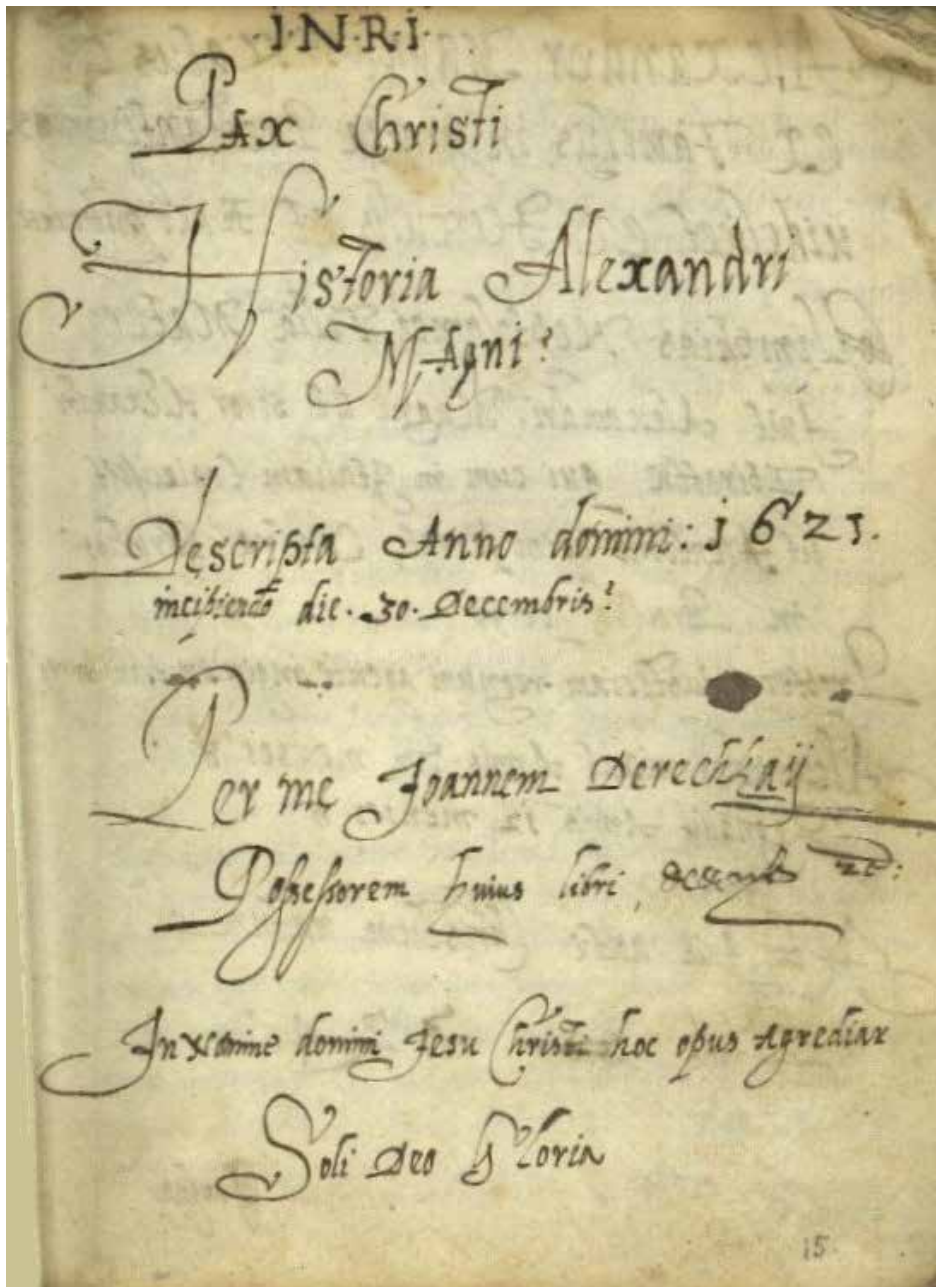 I·N·R·I·
Pax Christi
Historia Alexandri
Magni:
Descripta Anno domini: 1621.
incipiendo die. 30. Decembris:
Per me Joannem Derechkaij
Possessorem huius libri,
In nomine domini Jesu Christi hoc opus agrediar
Soli Deo Gloria
15